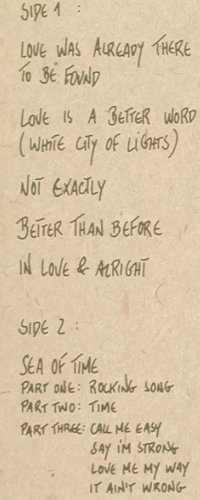 SIDE 1 :
LOVE WAS ALREADY THERE
TO BE FOUND
LOVE IS A BETTER WORD
(WHITE CITY OF LIGHTS)
NOT EXACTLY
BETTER THAN BEFORE
IN LOVE & ALRIGHT
SIDE 2 :
SEA OF TIME
PART ONE: ROCKING SONG
PART TWO: TIME
PART THREE: CALL ME EASY
SAY I'M STRONG
LOVE ME MY WAY
IT AIN'T WRONG